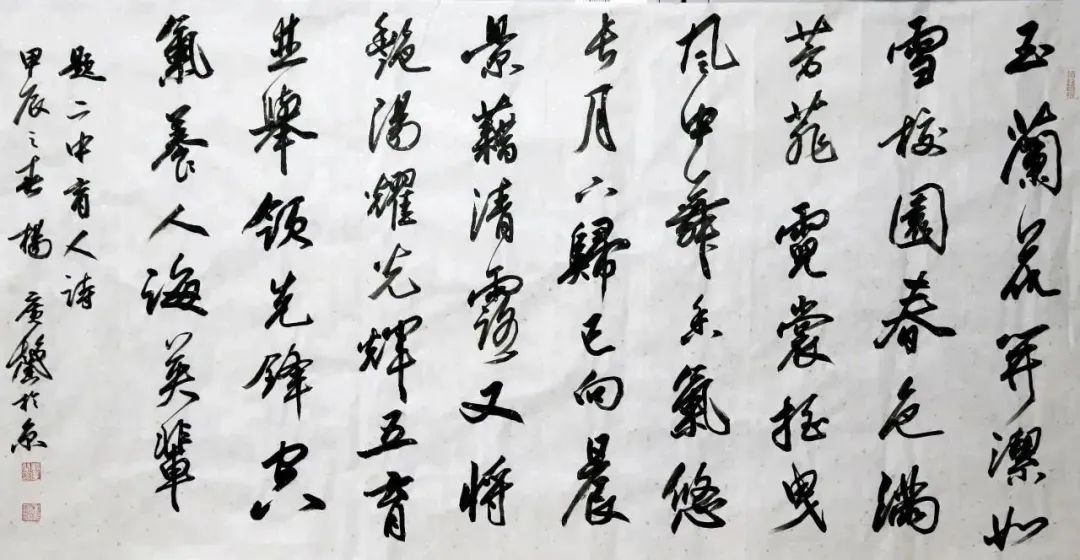 玉蘭花開潔如
雪校園春色滿
芳菲霓裳搖曳
風中舞香氣悠
长月下歸已向晨
景藉清露又將
艷陽耀光輝五育
並舉領先鋒
氣養人誨英輩
題二中育人詩
甲辰之春楊廣馨於京